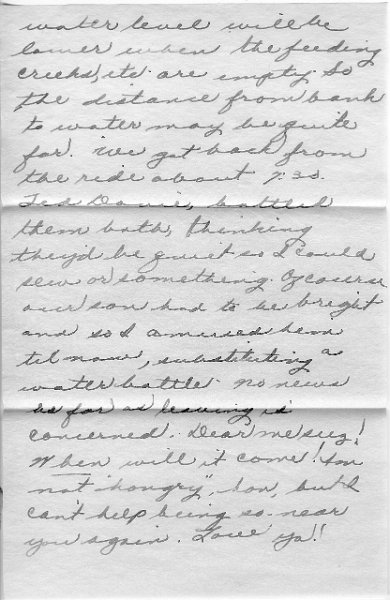 water level will be
lower when the feeding
creeks, etc. are empty. So
the distance from bank
to water may be quite
far. We got back from
the ride about 7:30.
Fed Davie, bottled
them both, thinking
they'd be quiet so I could
sew or something. Of course
our son had to be bright
and so I amused him
til now, substituting a
water bottle. No news
as far as leaving is
concerned. Dear me suz!
When will it come! I'm
not "hongry", hon, but I
can't help being so near
you again. Love ya!